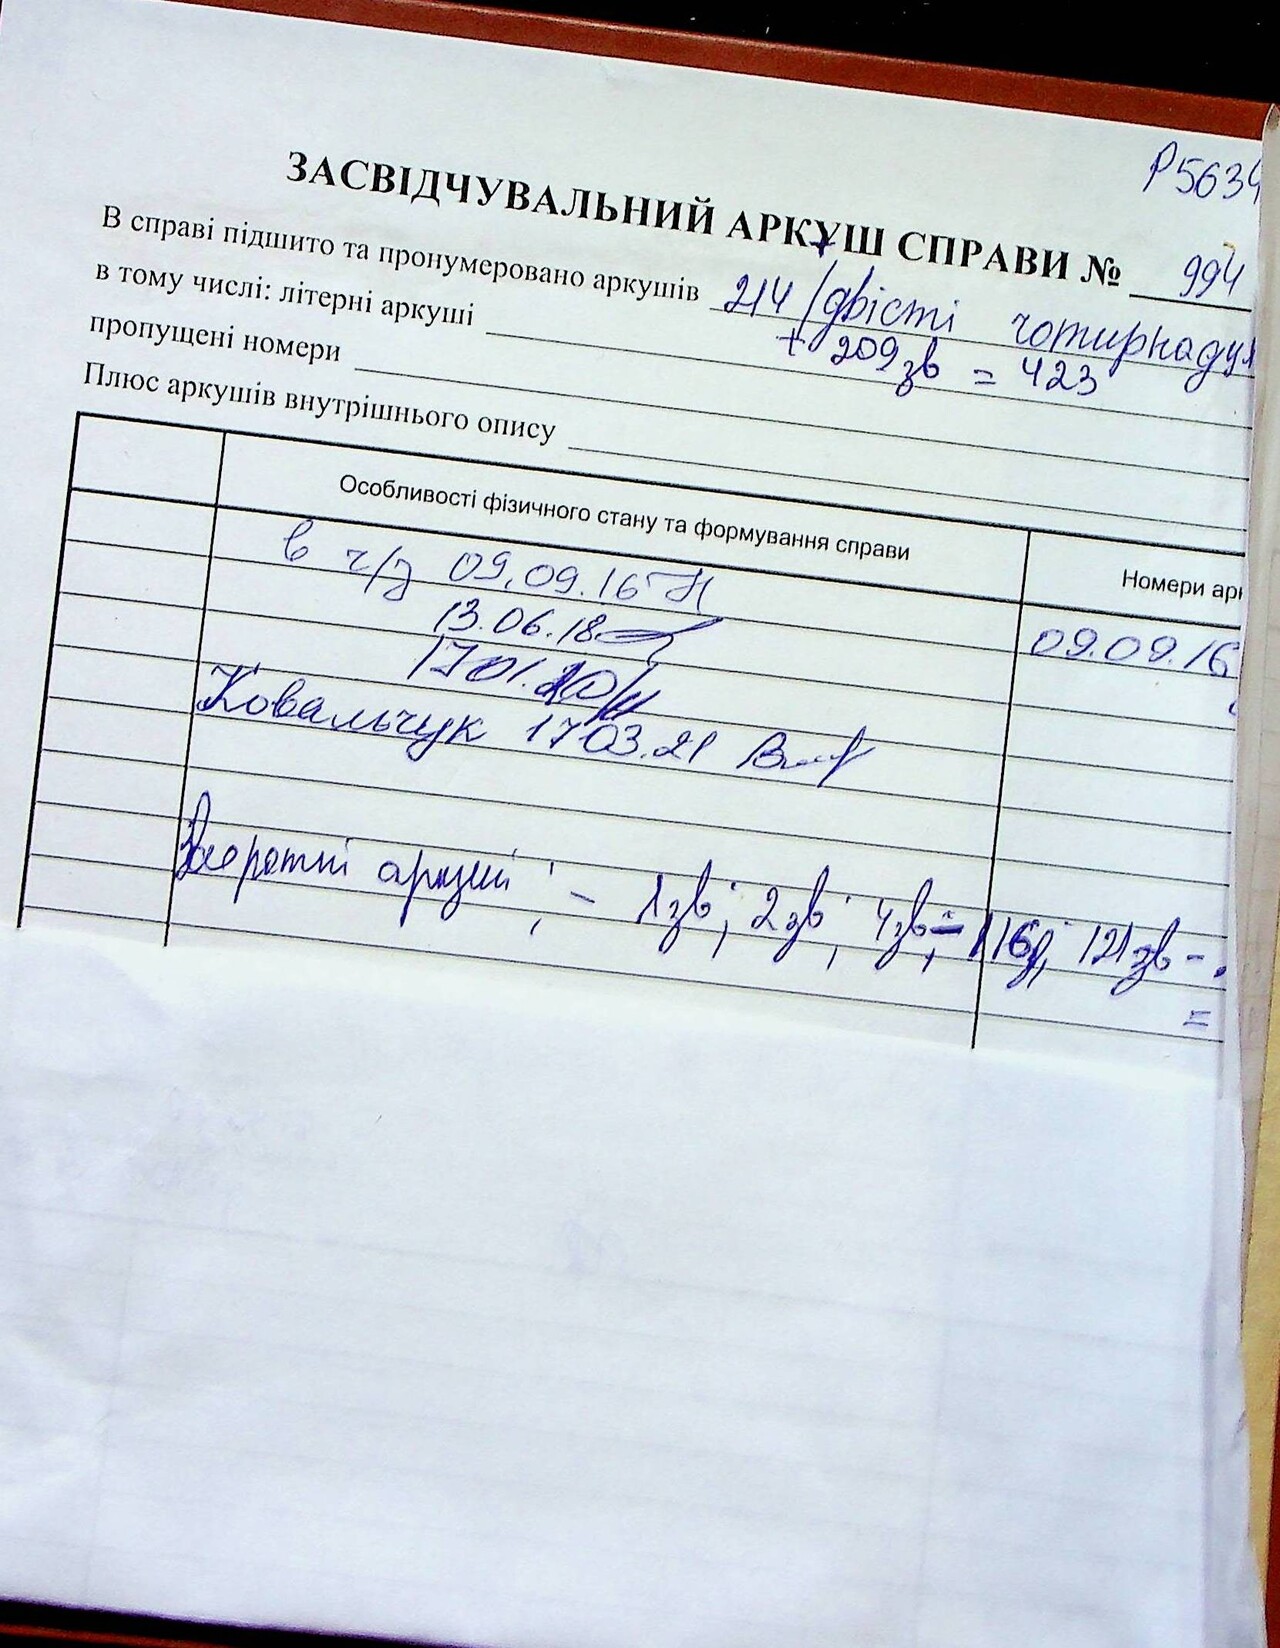 Р5634
ЗАСВІДЧУВАЛЬНИЙ АРКУШ СПРАВИ № 994
В справі підшито та пронумеровано аркушів 214 /двісті чотирнадця
в тому числі: літерні аркуші + 209зв = 423
пропущені номери
Плюс аркушів внутрішнього опису
Особливості фізичного стану та формування справи
Номери арк
в ч/з 09.09.16
09.09.16
13.06.18
17 01.20
Ковальчук 17 03.21
Зворотні аркуші - 1зв; 2зв; 4зв- 116зв; 121зв -
=